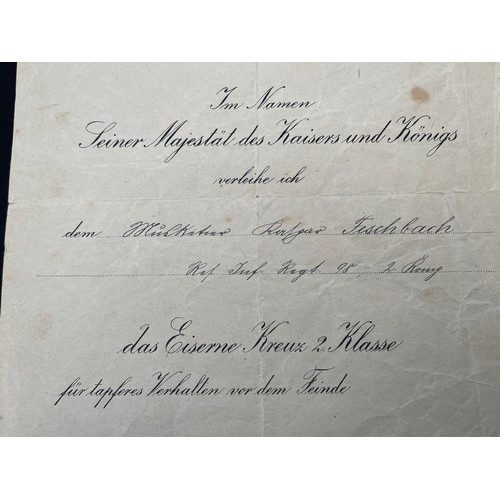 Im Namen
Seiner Majestät des Kaisers und Königs
verleihe ich
dem Musketier Kaspar Fischbach
Res Inf Regt 98, 2 Komp
das Eiserne Kreuz 2. Klasse
für tapferes Verhalten vor dem Feinde